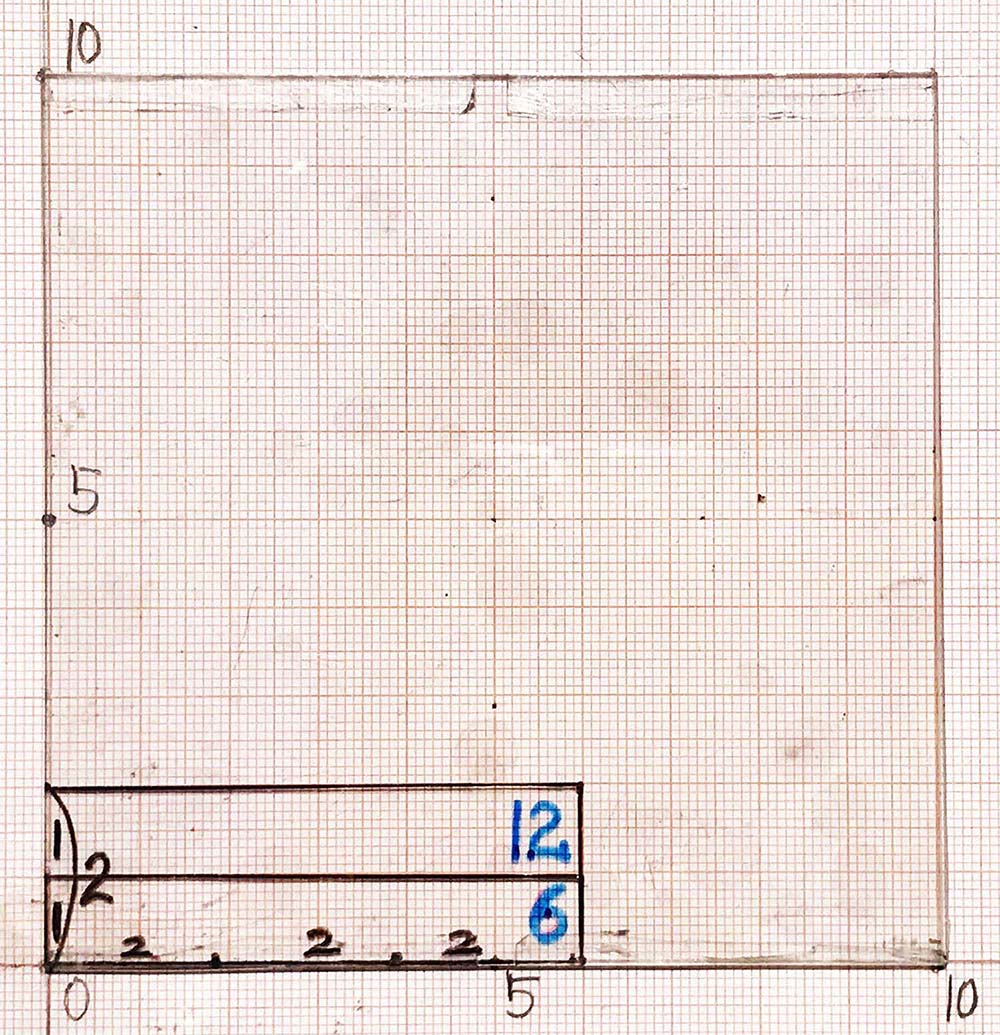 10
5
12
1
2
6
1
2 2 2
0 5 10